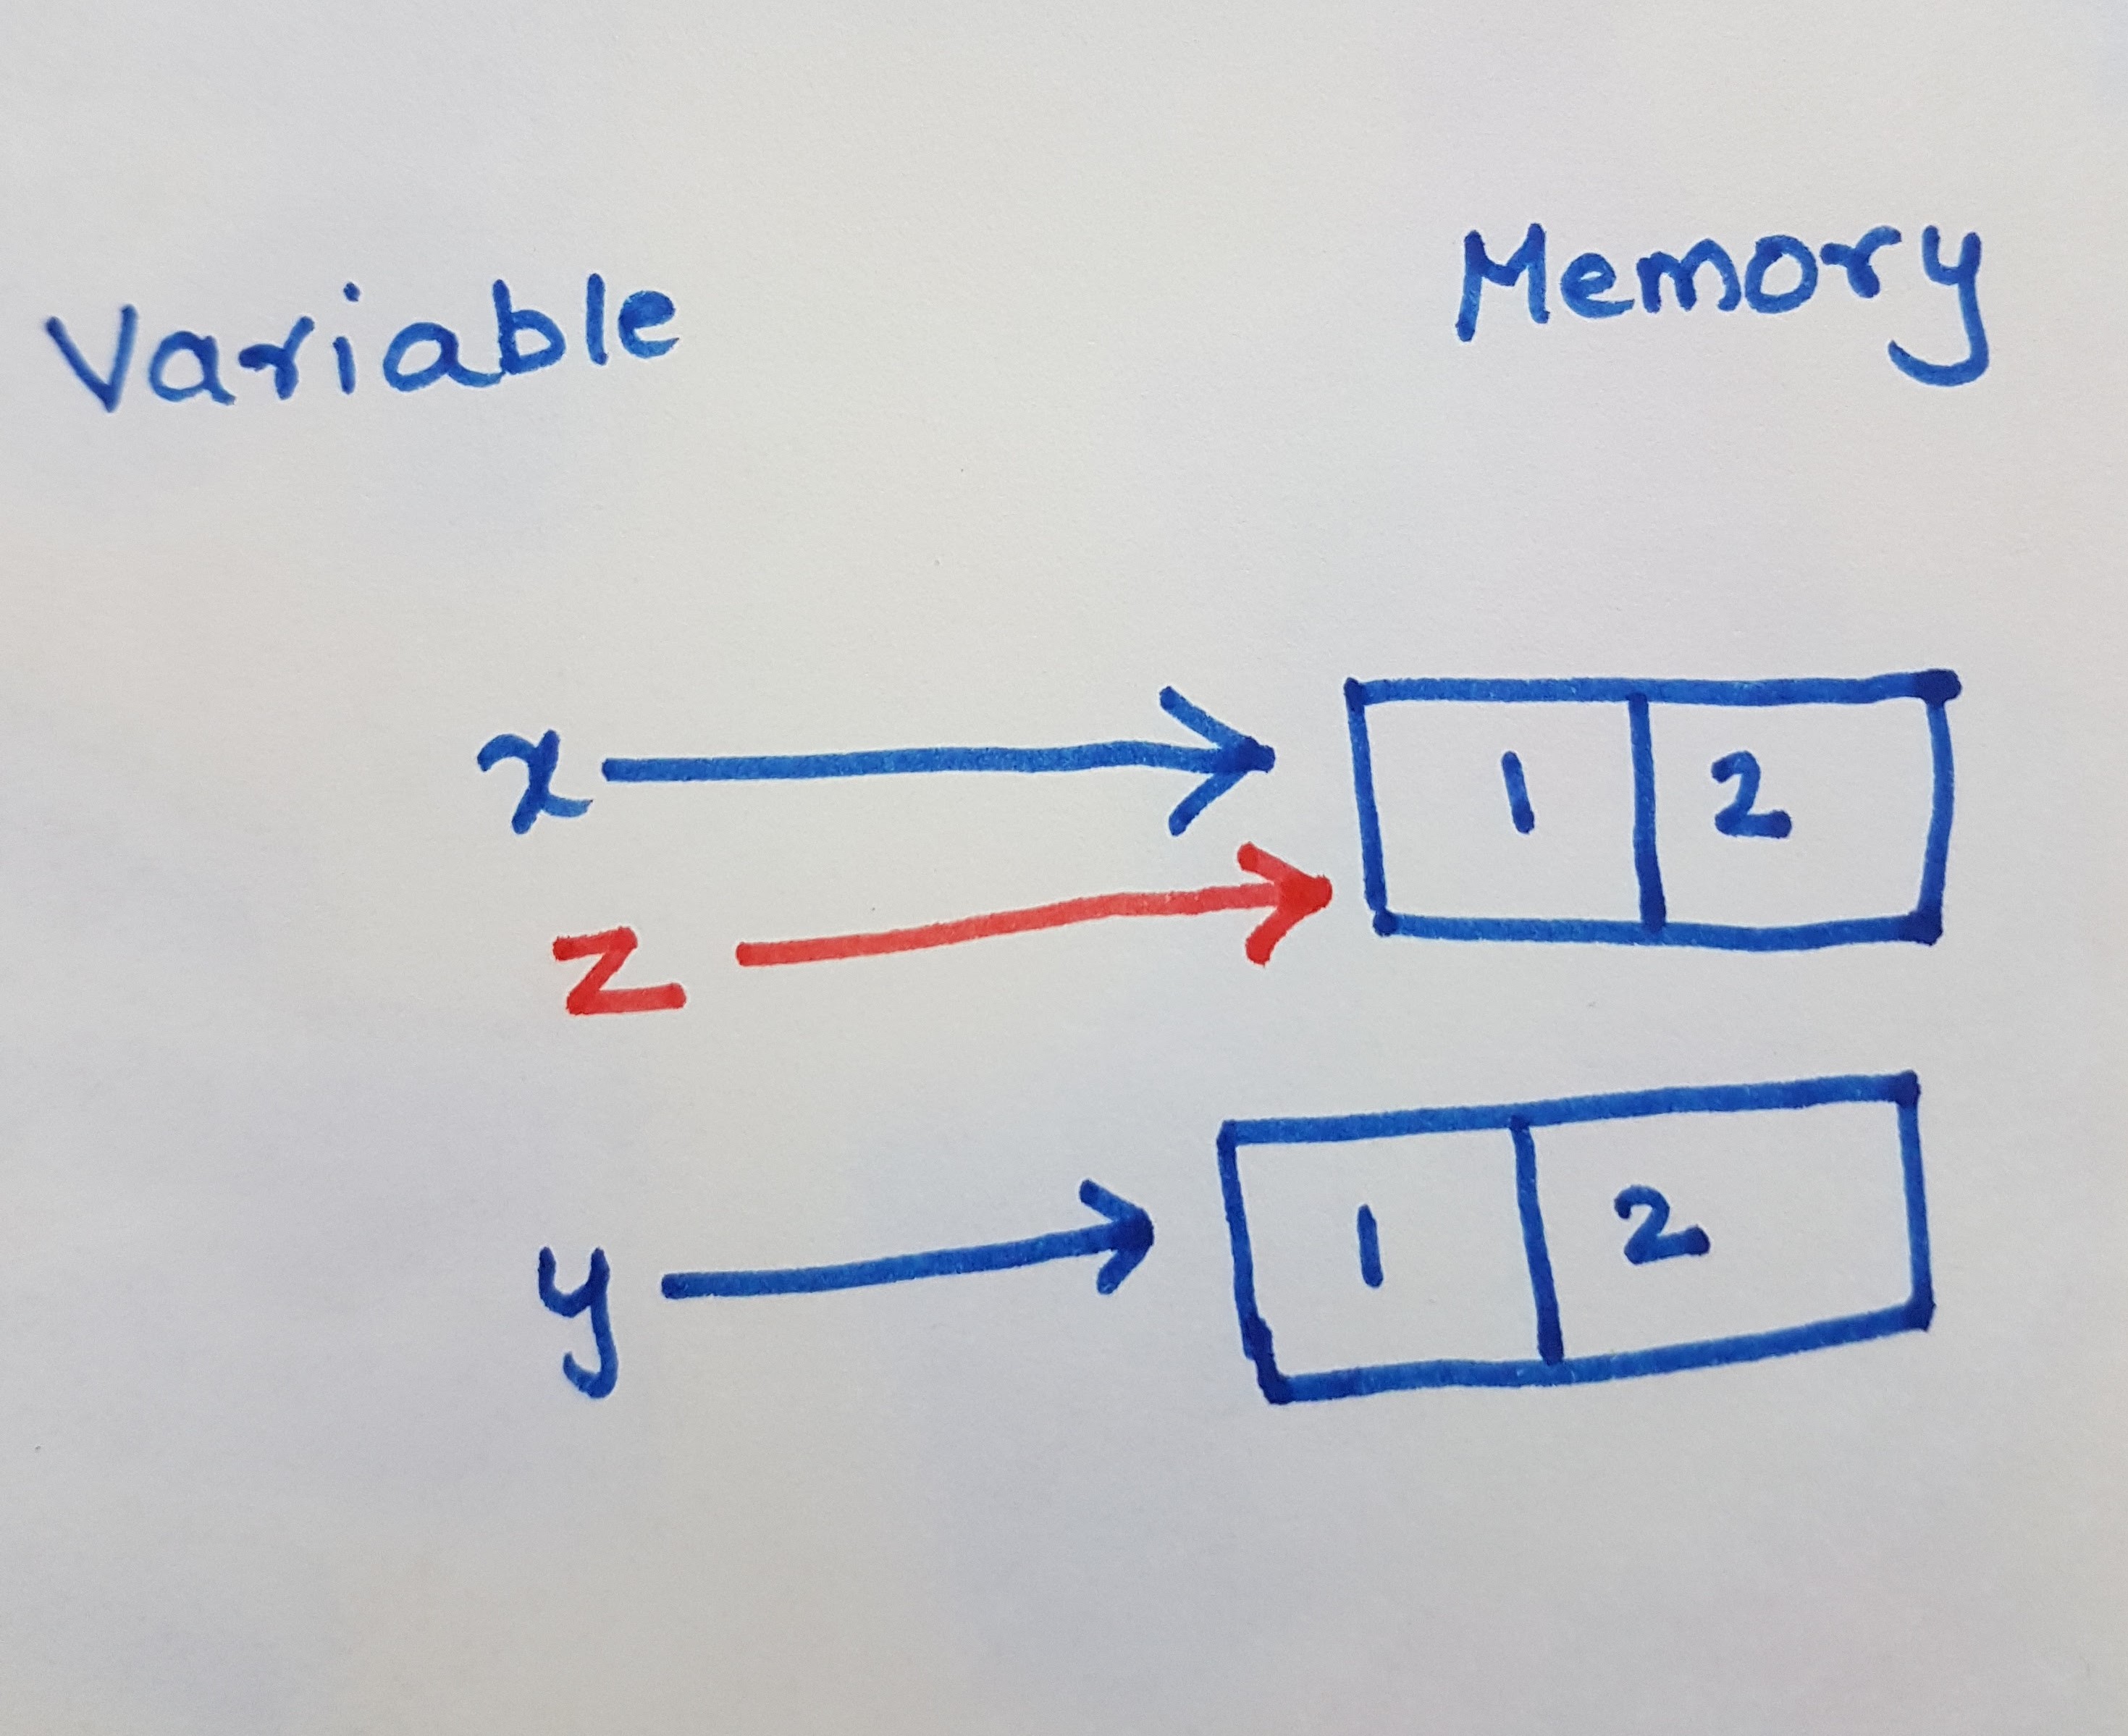 Variable Memory
x 1 2
z
y 1 2